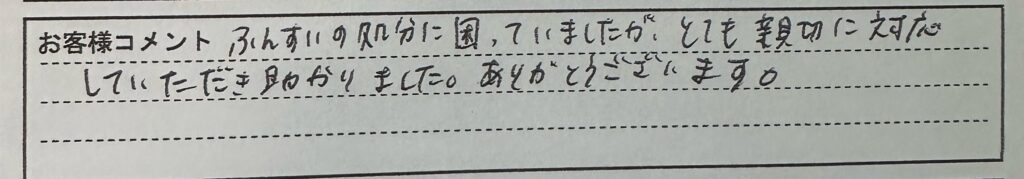 お客様コメント ふんすいの処分に困っていましたが、とても親切に対応
していただき助かりました。ありがとうございます。